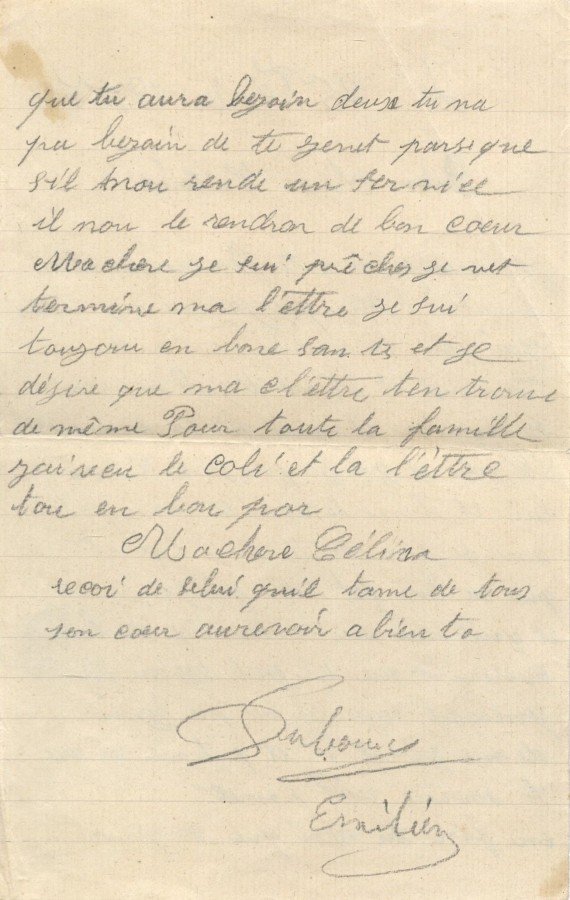 que tu aura bezoin deuse tu na
pa bezoin de te genet parsique
s'il tnou rende un servicee
il nou le rendron de bon coeur
Machere je sui prêches je vet
terminé ma l'éttre je sui
toujoru en bone sante et je
désire que ma cl'éttre ten trouve
de même Pour toute la famille
jai recu le coli et la l'éttre
tou en bon por
Machere Célina
recoi de selui quil tame de tous
son coeur aurevoir a biento
Emilien